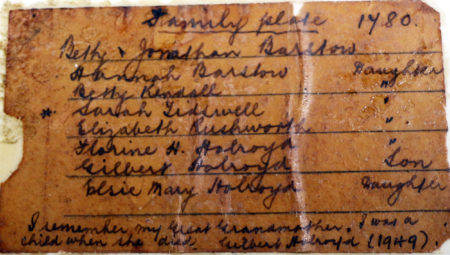 Family plate 1780.
Betty & Jonathan Barstow
Hannah Barstow Daughter
Betty Kendall "
* Sarah Tidswell "
Elizabeth Rushworth "
Florine H. Holroyd "
Gilbert Holroyd Son
Elsie Mary Holroyd Daughter
I remember my Great Grandmother. I was a
child when she died. Gilbert Holroyd (1949).